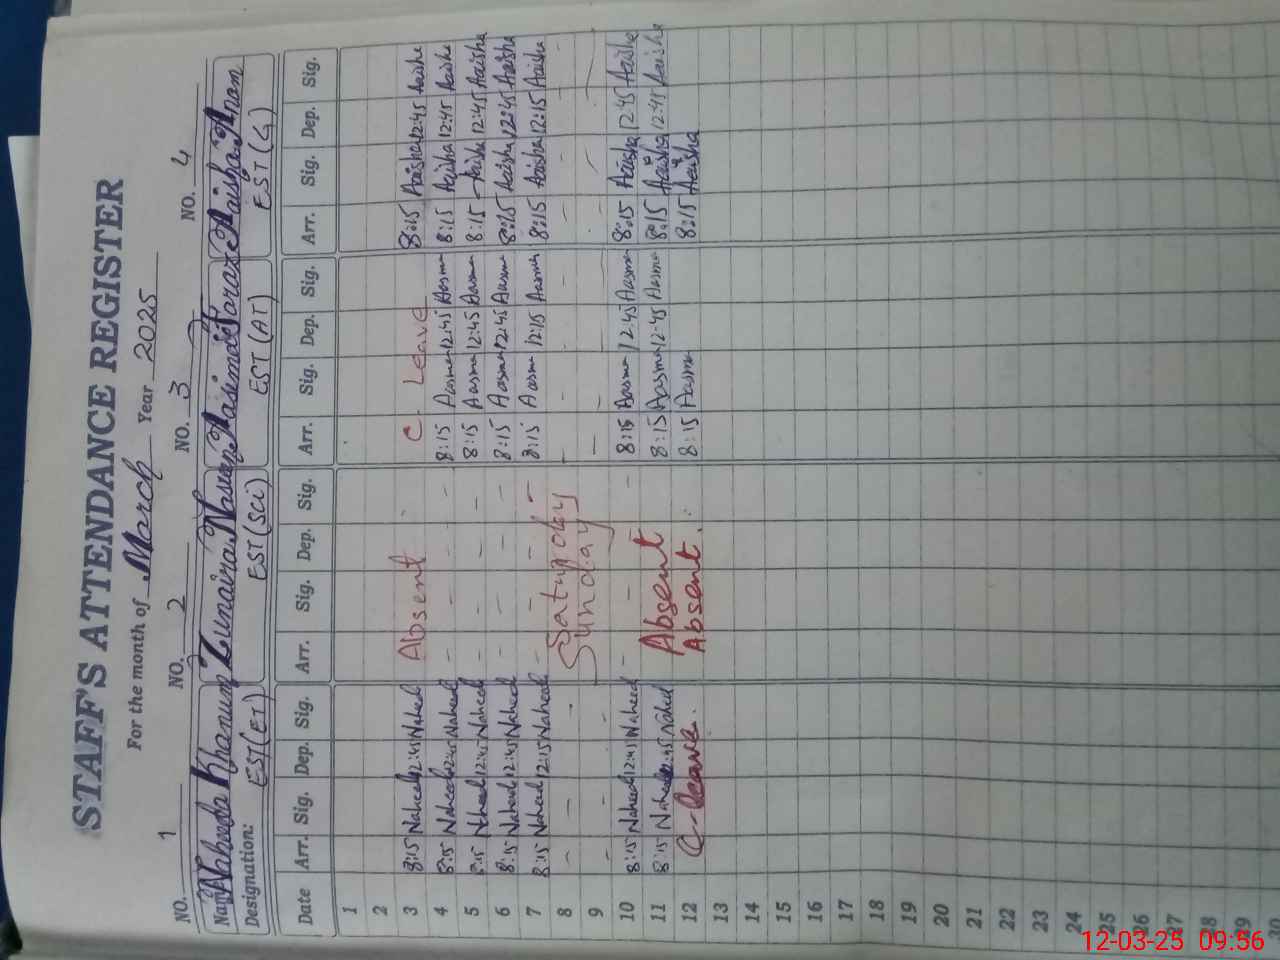 STAFF'S ATTENDANCE REGISTER
For the month of March Year 2025
NO. 1 NO. 2 NO. 3 NO. 4
Name Naheeda Khanum Zunaira Nasreen Aaisha Anam
Designation: EST(ET) EST(SCI) EST(AT) EST(G)
Date Arr. Sig. Dep. Sig. Arr. Sig. Dep. Sig. Arr. Sig. Dep. Sig. Arr. Sig. Dep. Sig.
1
2
3 8:15 Naheed 12:45 Naheed Absent C. Leave 8:15 Aaisha 12:45 Aaisha
4 8:15 Naheed 12:45 Naheed - - - - 8:15 Aasma 12:45 Aasma 8:15 Aaisha 12:45 Aaisha
5 8:15 Naheed 12:45 Naheed - - - - 8:15 Aasma 12:45 Aasma 8:15 Aaisha 12:45 Aaisha
6 8:15 Naheed 12:45 Naheed - - - - 8:15 Aasma 12:45 Aasma 8:15 Aaisha 12:45 Aaisha
7 8:15 Naheed 12:15 Naheed - - - - 8:15 Aasma 12:15 Aasma 8:15 Aaisha 12:15 Aaisha
8 - - - Saturday - - - - -
9 - - - Sunday - - - - -
10 8:15 Naheed 12:45 Naheed - - - 8:15 Aasma 12:45 Aasma 8:15 Aaisha 12:45 Aaisha
11 8:15 Naheed 12:45 Naheed Absent 8:15 Aasma 12:45 Aasma 8:15 Aaisha 12:45 Aaisha
12 C-Leave. Absent. 8:15 Aasma 8:15 Aaisha
13
14
15
16
17
18
19
20
21
22
23
24
25
26
27
28
29
30
12-03-25 09:56